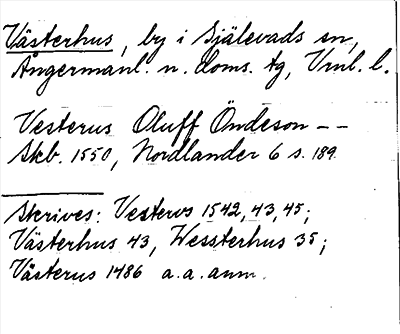 Västerhus, by i Själevads sn,
Ångermanl. n. doms. tg, Vrnl. l.
Vesterus Oluff Öndeson --
Skb. 1550, Nordlander 6 s. 189.
Skrives: Vesterus 1542, 43, 45;
Västerhus 43, Wessterhus 35;
Västerus 1486 a.a. anm.